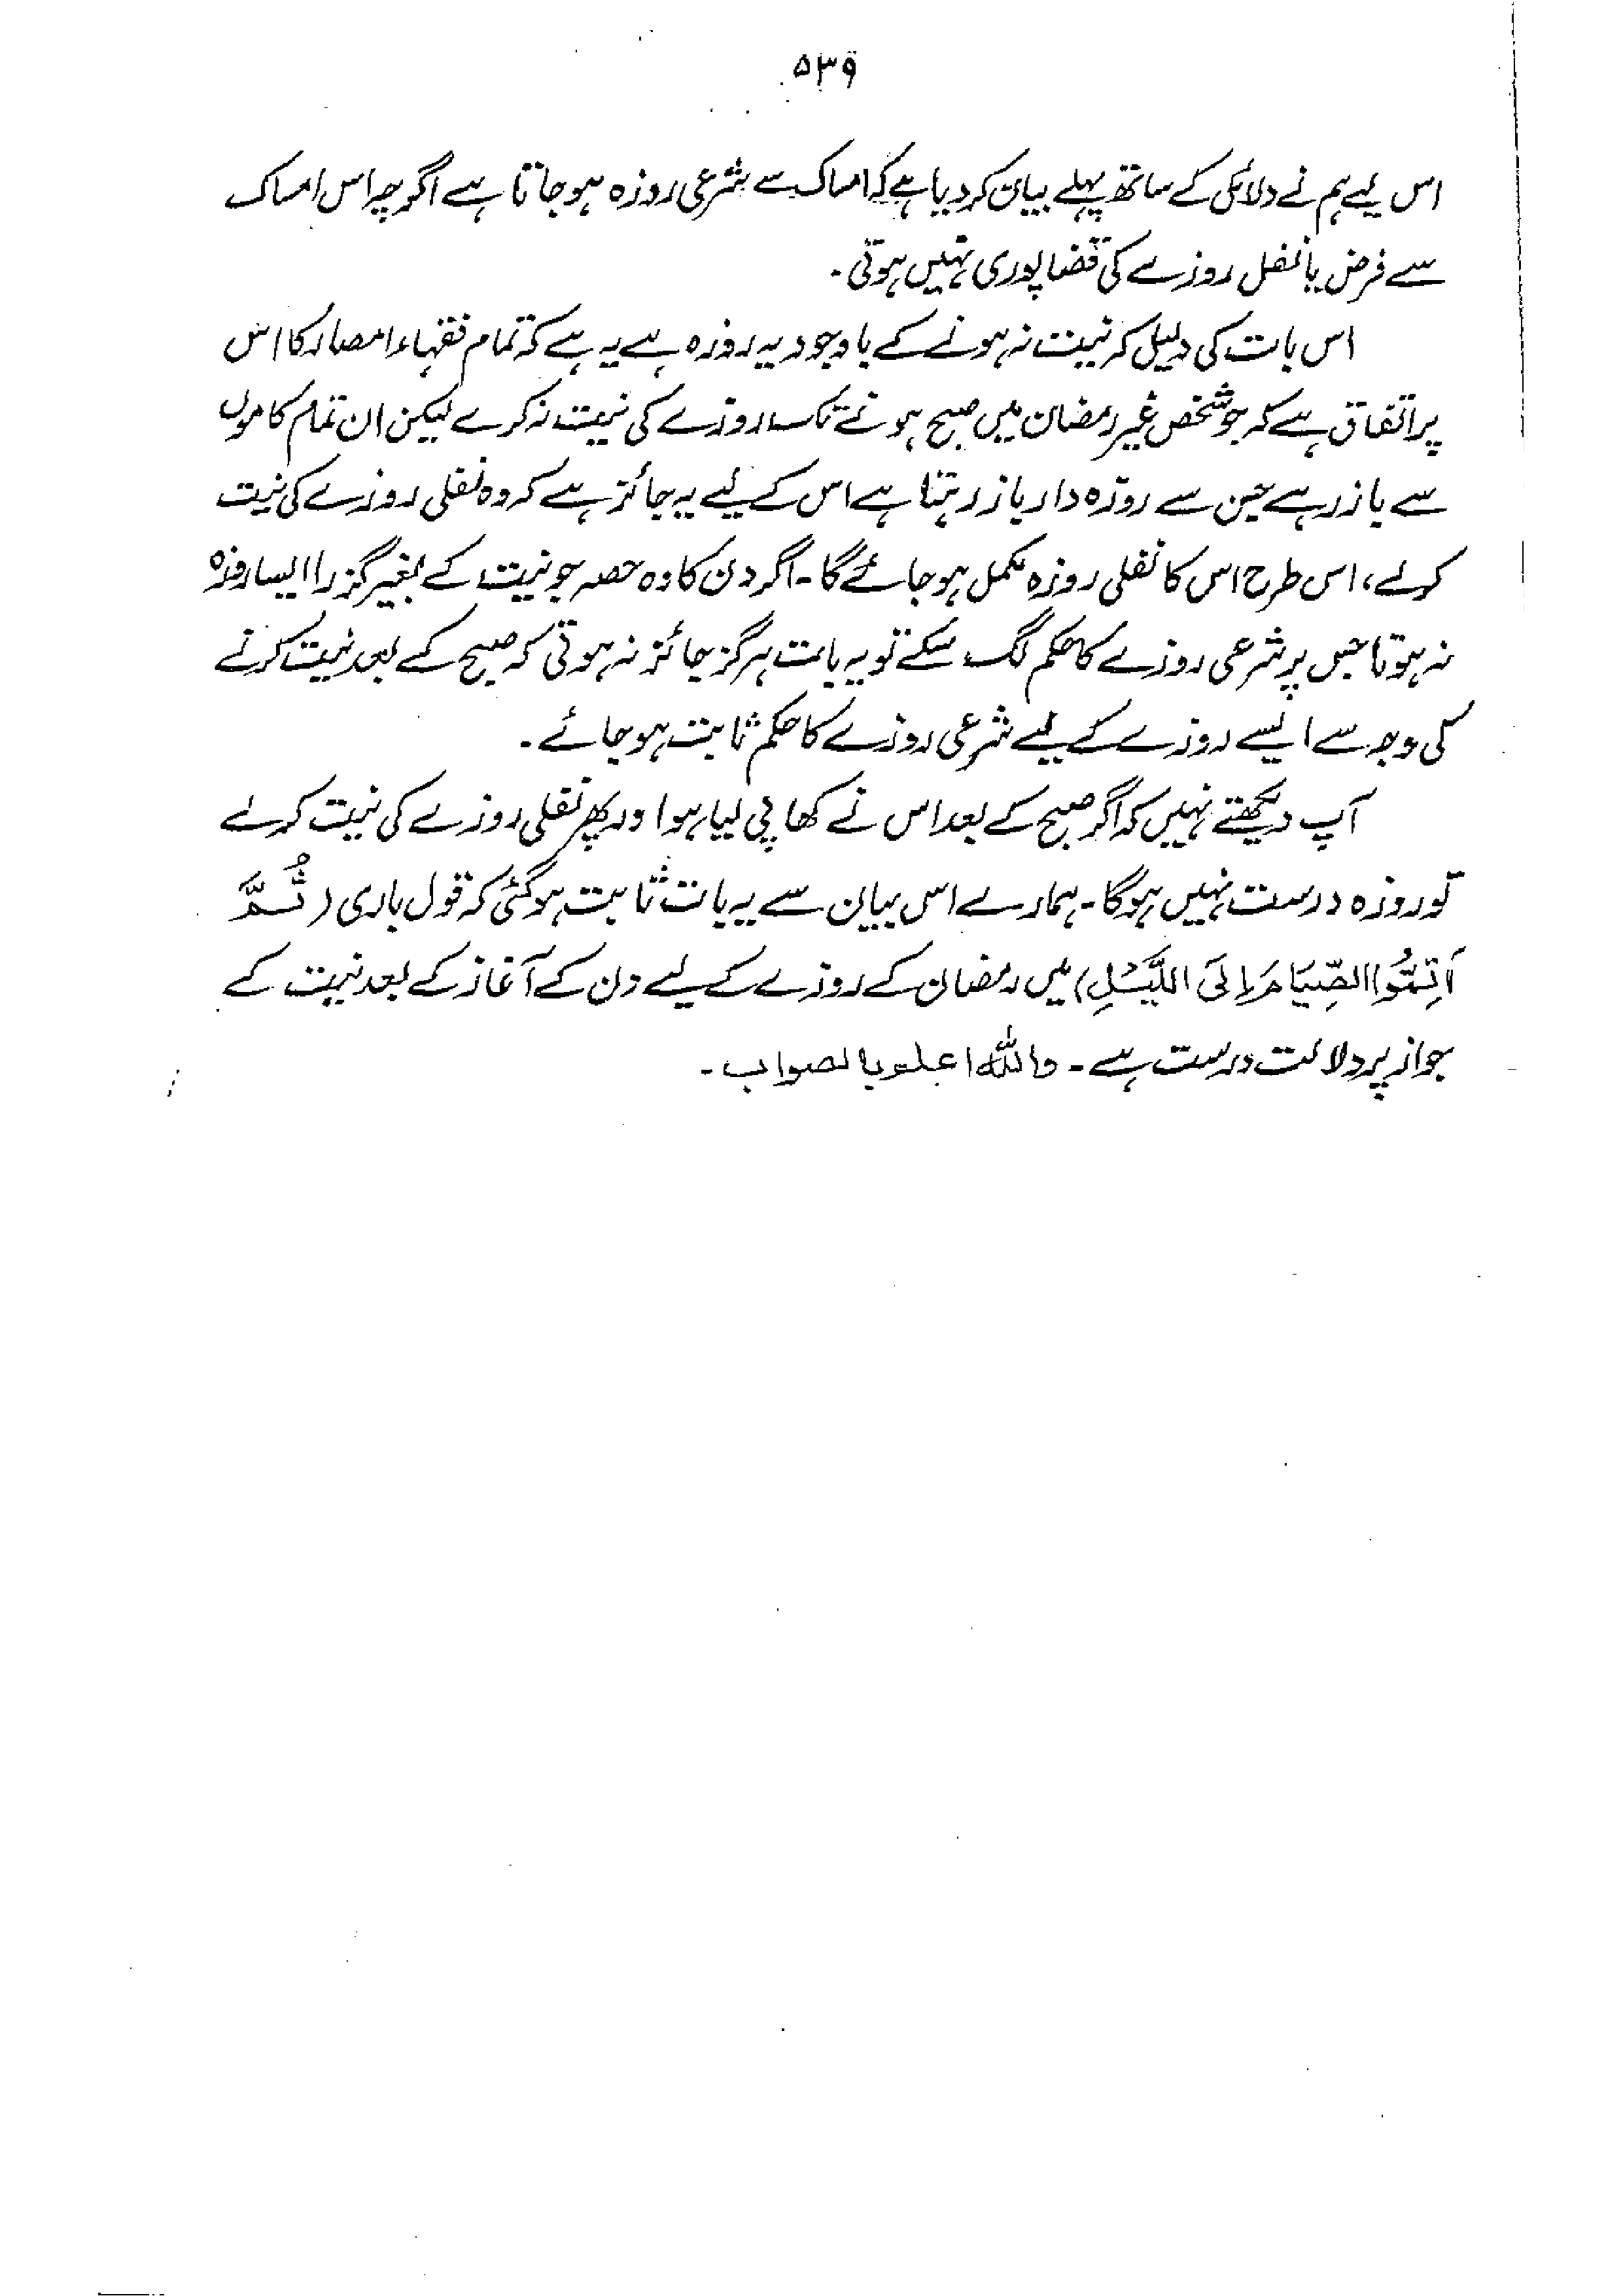 ۵۳۹
اس لیے ہم نے دلائل کے ساتھ پہلے بیان کر دیا ہے کہ امساک سے شرعی روزہ ہو جاتا ہے اگرچہ اس امساک
سے فرض یا نفل روزے کی قضا پوری نہیں ہوتی۔
اس بات کی دلیل کہ نیت نہ ہونے کے باوجود یہ روزہ ہے یہ ہے کہ تمام فقہاء امصار کا اس
پر اتفاق ہے کہ جو شخص غیر رمضان میں صبح ہونے تک روزے کی نیت نہ کرے لیکن ان تمام کاموں
سے باز رہے جن سے روزہ دار باز رہتا ہے اس کے لیے یہ جائز ہے کہ وہ نفلی روزے کی نیت
کرلے، اس طرح اس کا نفلی روزہ مکمل ہو جائے گا۔ اگر دن کا وہ حصہ جو نیت کے بغیر گزرا ایسا روزہ
نہ ہوتا جس پر شرعی روزے کا حکم لگ سکے تو یہ بات ہرگز جائز نہ ہوتی کہ صبح کے بعد نیت کرنے
کی وجہ سے ایسے روزے کے لیے شرعی روزے کا حکم ثابت ہو جائے۔
آپ دیکھتے نہیں کہ اگر صبح کے بعد اس نے کھا پی لیا ہو اور پھر نفلی روزے کی نیت کرلے
تو روزہ درست نہیں ہوگا۔ ہمارے اس بیان سے یہ بات ثابت ہوگئی کہ قول باری (ثُمَّ
اَتِمُّوا الصِّيَامَ اِلَى اللَّيْلِ) میں رمضان کے روزے کے لیے دن کے آغاز کے بعد نیت کے
جواز پر دلالت درست ہے۔ واللہ اعلم بالصواب۔